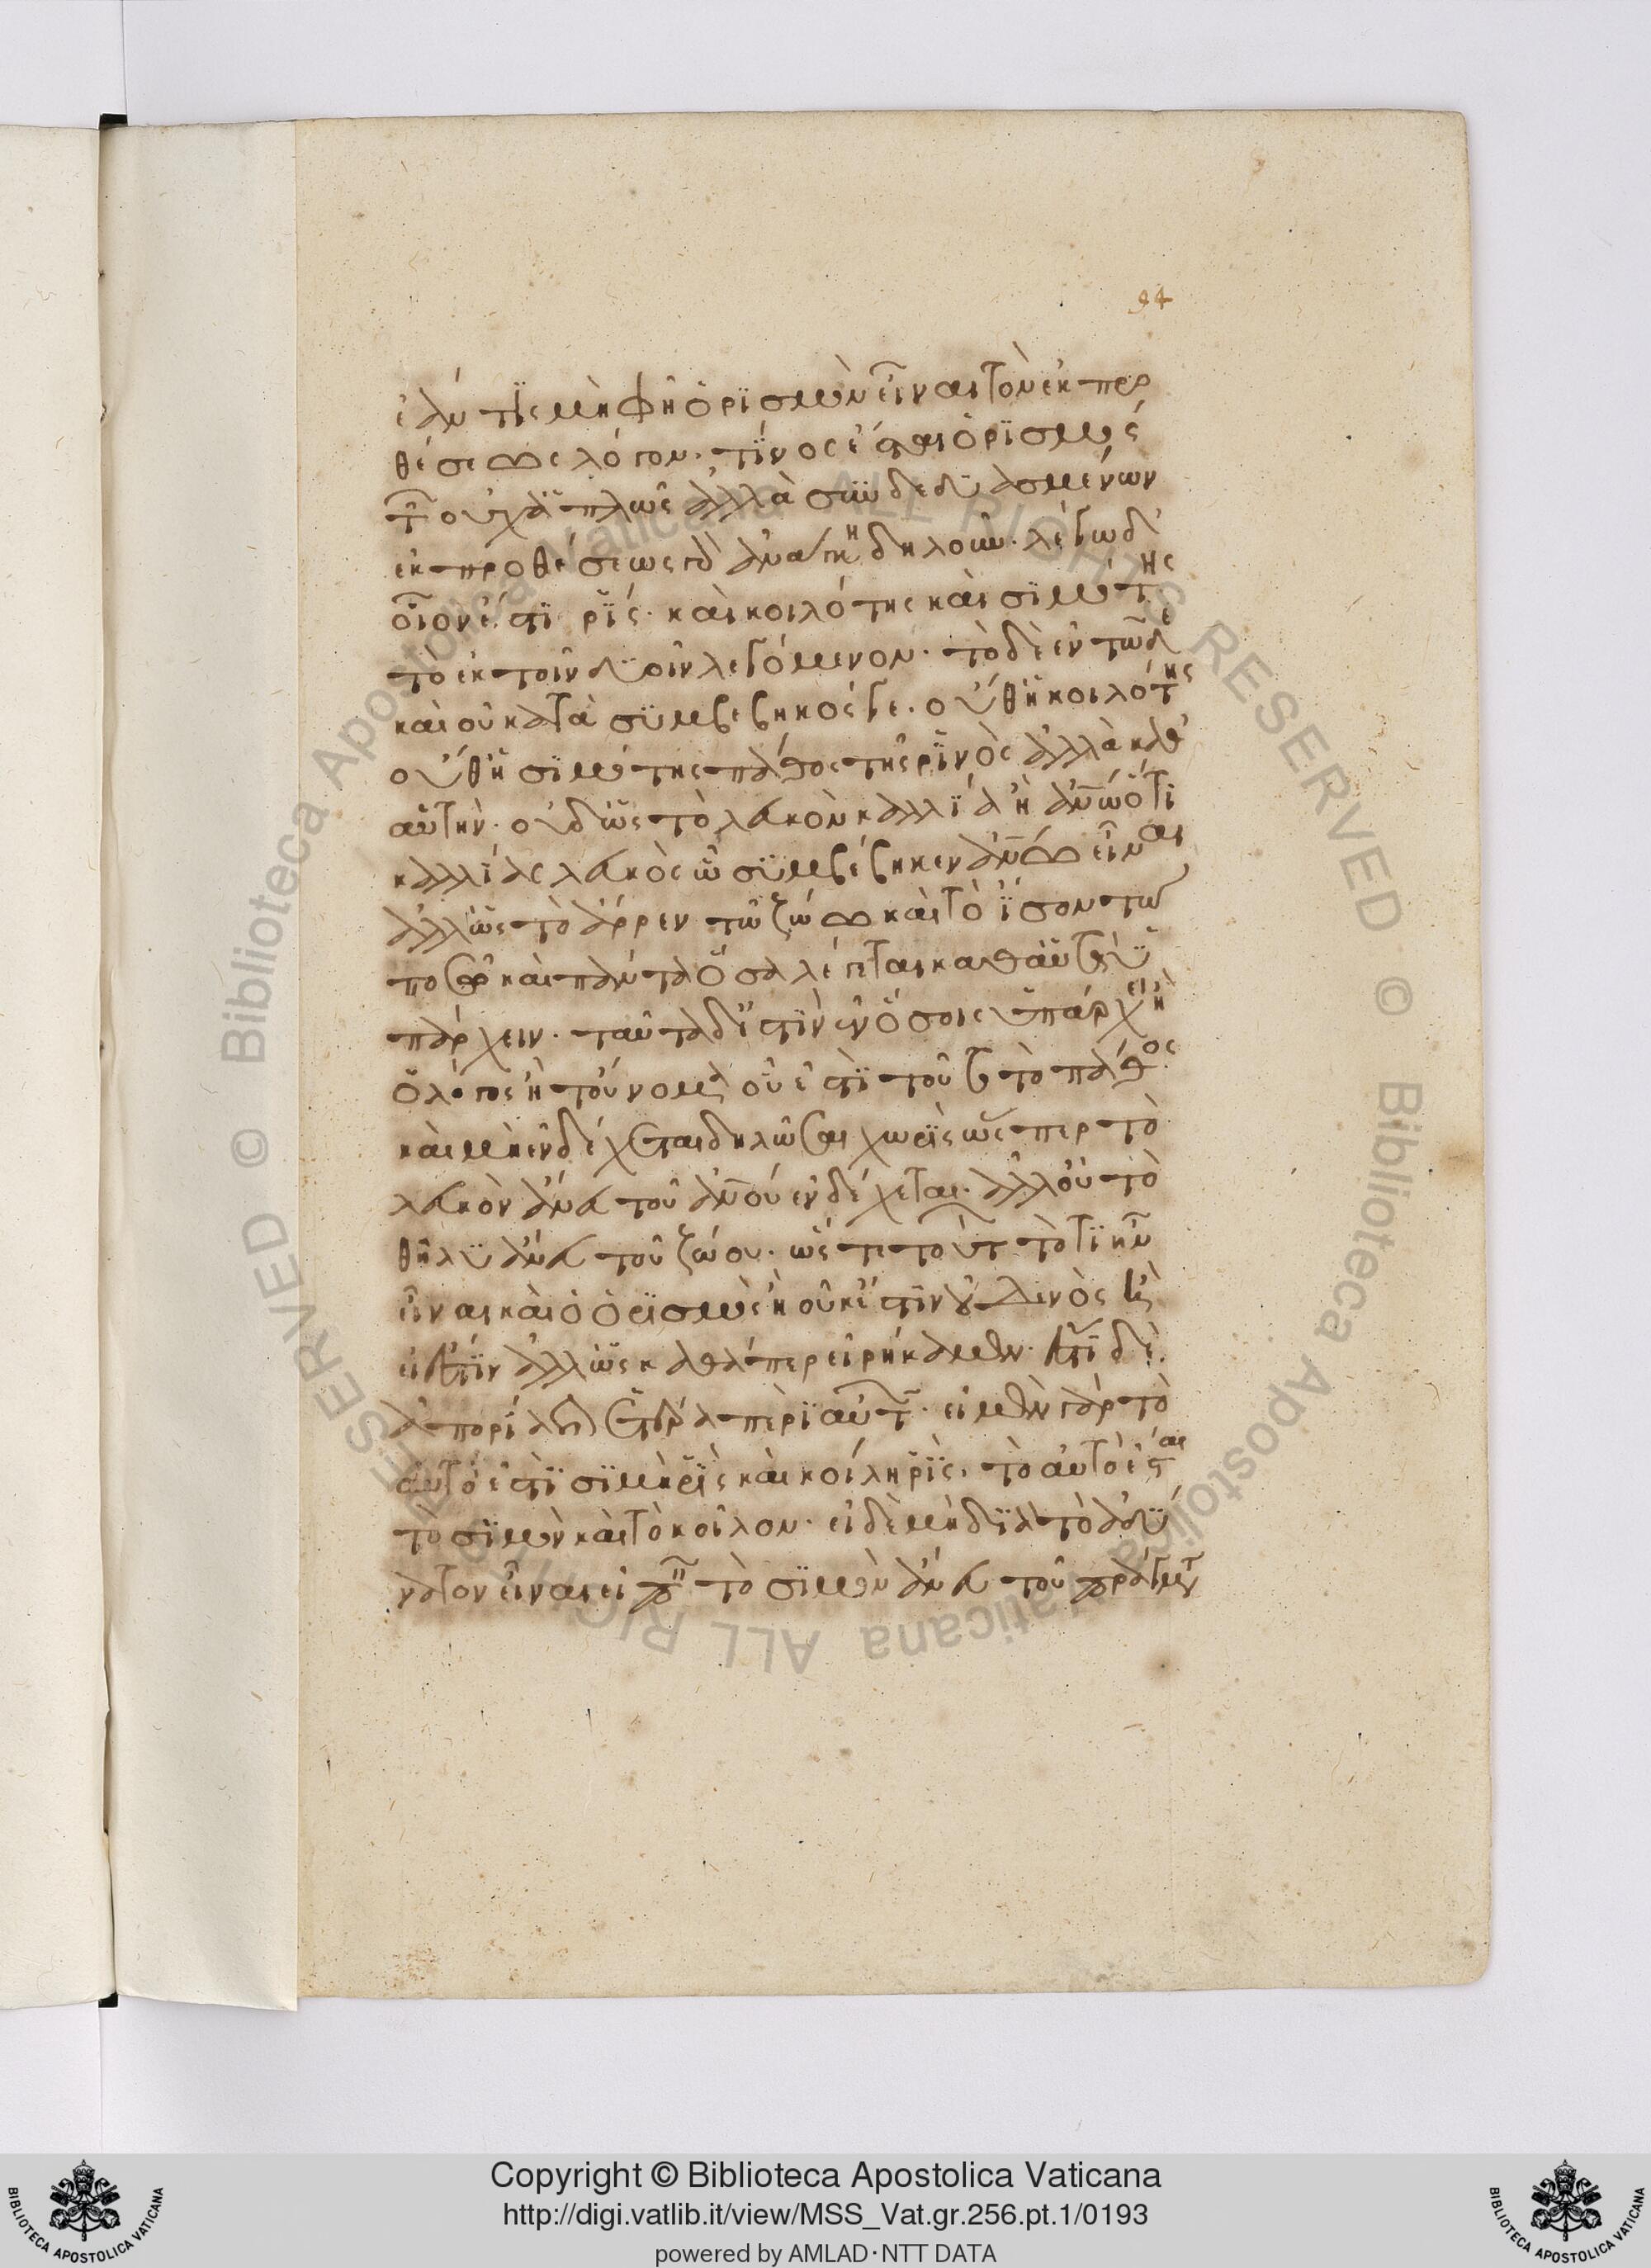 94
ἐάν τις μὴ φῆ ὁρϊσμὸν εἶναι τὸν ἐκ προσ
θέσεως λόγον· τίνος ἔσται ὁρϊσμός
τῶν οὐχ ἁπλῶς ἀλλὰ συνδεδυασμένων
ἐκ προθέσεως γὰρ ἀνάγκη δηλοῦν· λέγω δ'
οἷον ἔστι ῥῒς· καὶ κοιλότης καὶ σϊμότης
τὸ ἐκ τοῖν δυοῖν λεγόμενον· τὸ δὲ ἐν τῶδε
καὶ οὐ κατὰ συμβεβηκός γε· οὔθ' ἡ κοιλότης
οὔθ' ἡ σϊμότης πάθος τῆς ῥϊνὸς ἀλλὰ καθ'
αὑτήν· οὐδ' ὡς τὸ λευκὸν καλλία ἢ ἀνω ὅτι
καλλίας λευκὸς ὧ συμβέβηκεν ἀνω εἶναι
ἀλλ' ὡς τὸ ἄρρεν τῶ ζώω καὶ τὸ ἴσον τῶ
ποσῶ καὶ πάντα ὅσα λέγεται καθ' αὑτὰ ὑ
πάρχειν· ταῦτα δ' ἐστὶν ἐν ὅσοις ὑπάρχει ἢ
ὁ λόγος ἢ τοὔνομα οὗ ἐστὶ τοῦτο τὸ πάθος
καὶ μὴ ἐνδέχεται δηλῶσαι χωρὶς ὥσπερ τὸ
λευκὸν ἄνευ τοῦ ανου ἐνδέχεται· ἀλλ' οὐ τὸ
θῆλυ ἄνευ τοῦ ζώου· ὥστε τούτων τὸ τί ἦν
εἶναι καὶ ὁ ὁρϊσμὸς ἢ οὐκ ἔστιν οὐδενὸς ἢ
εἰ ἔστιν ἄλλως καθάπερ εἰρήκαμεν· ἔστι δὲ
ἀπορία καὶ ἑτέρα περὶ αὐτῶν· εἰ μὲν γὰρ τὸ
αὐτό ἐστι σϊμὴ ῥῒς καὶ κοίλη ῥίς· τὸ αὐτὸ ἔσται
τὸ σϊμὸν καὶ τὸ κοῖλον· εἰ δὲ μὴ διὰ τὸ ἀδύ
νατον εἶναι εἰπεῖν τὸ σϊμὸν ἄνευ τοῦ πράγματος
© Biblioteca Apostolica Vaticana ALL RIGHTS RESERVED
© Biblioteca Apostolica Vaticana ALL RIGHTS RESERVED
Copyright © Biblioteca Apostolica Vaticana
http://digi.vatlib.it/view/MSS_Vat.gr.256.pt.1/0193
powered by AMLAD·NTT DATA
BIBLIOTECA APOSTOLICA VATICANA
BIBLIOTECA APOSTOLICA VATICANA